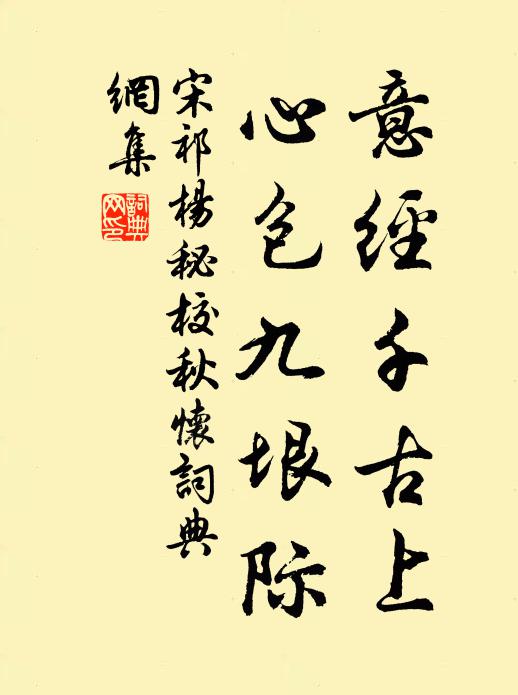 意經千古上
心包九垠际
宋祁楊秘校秋懷詞典
網集
詞典网印